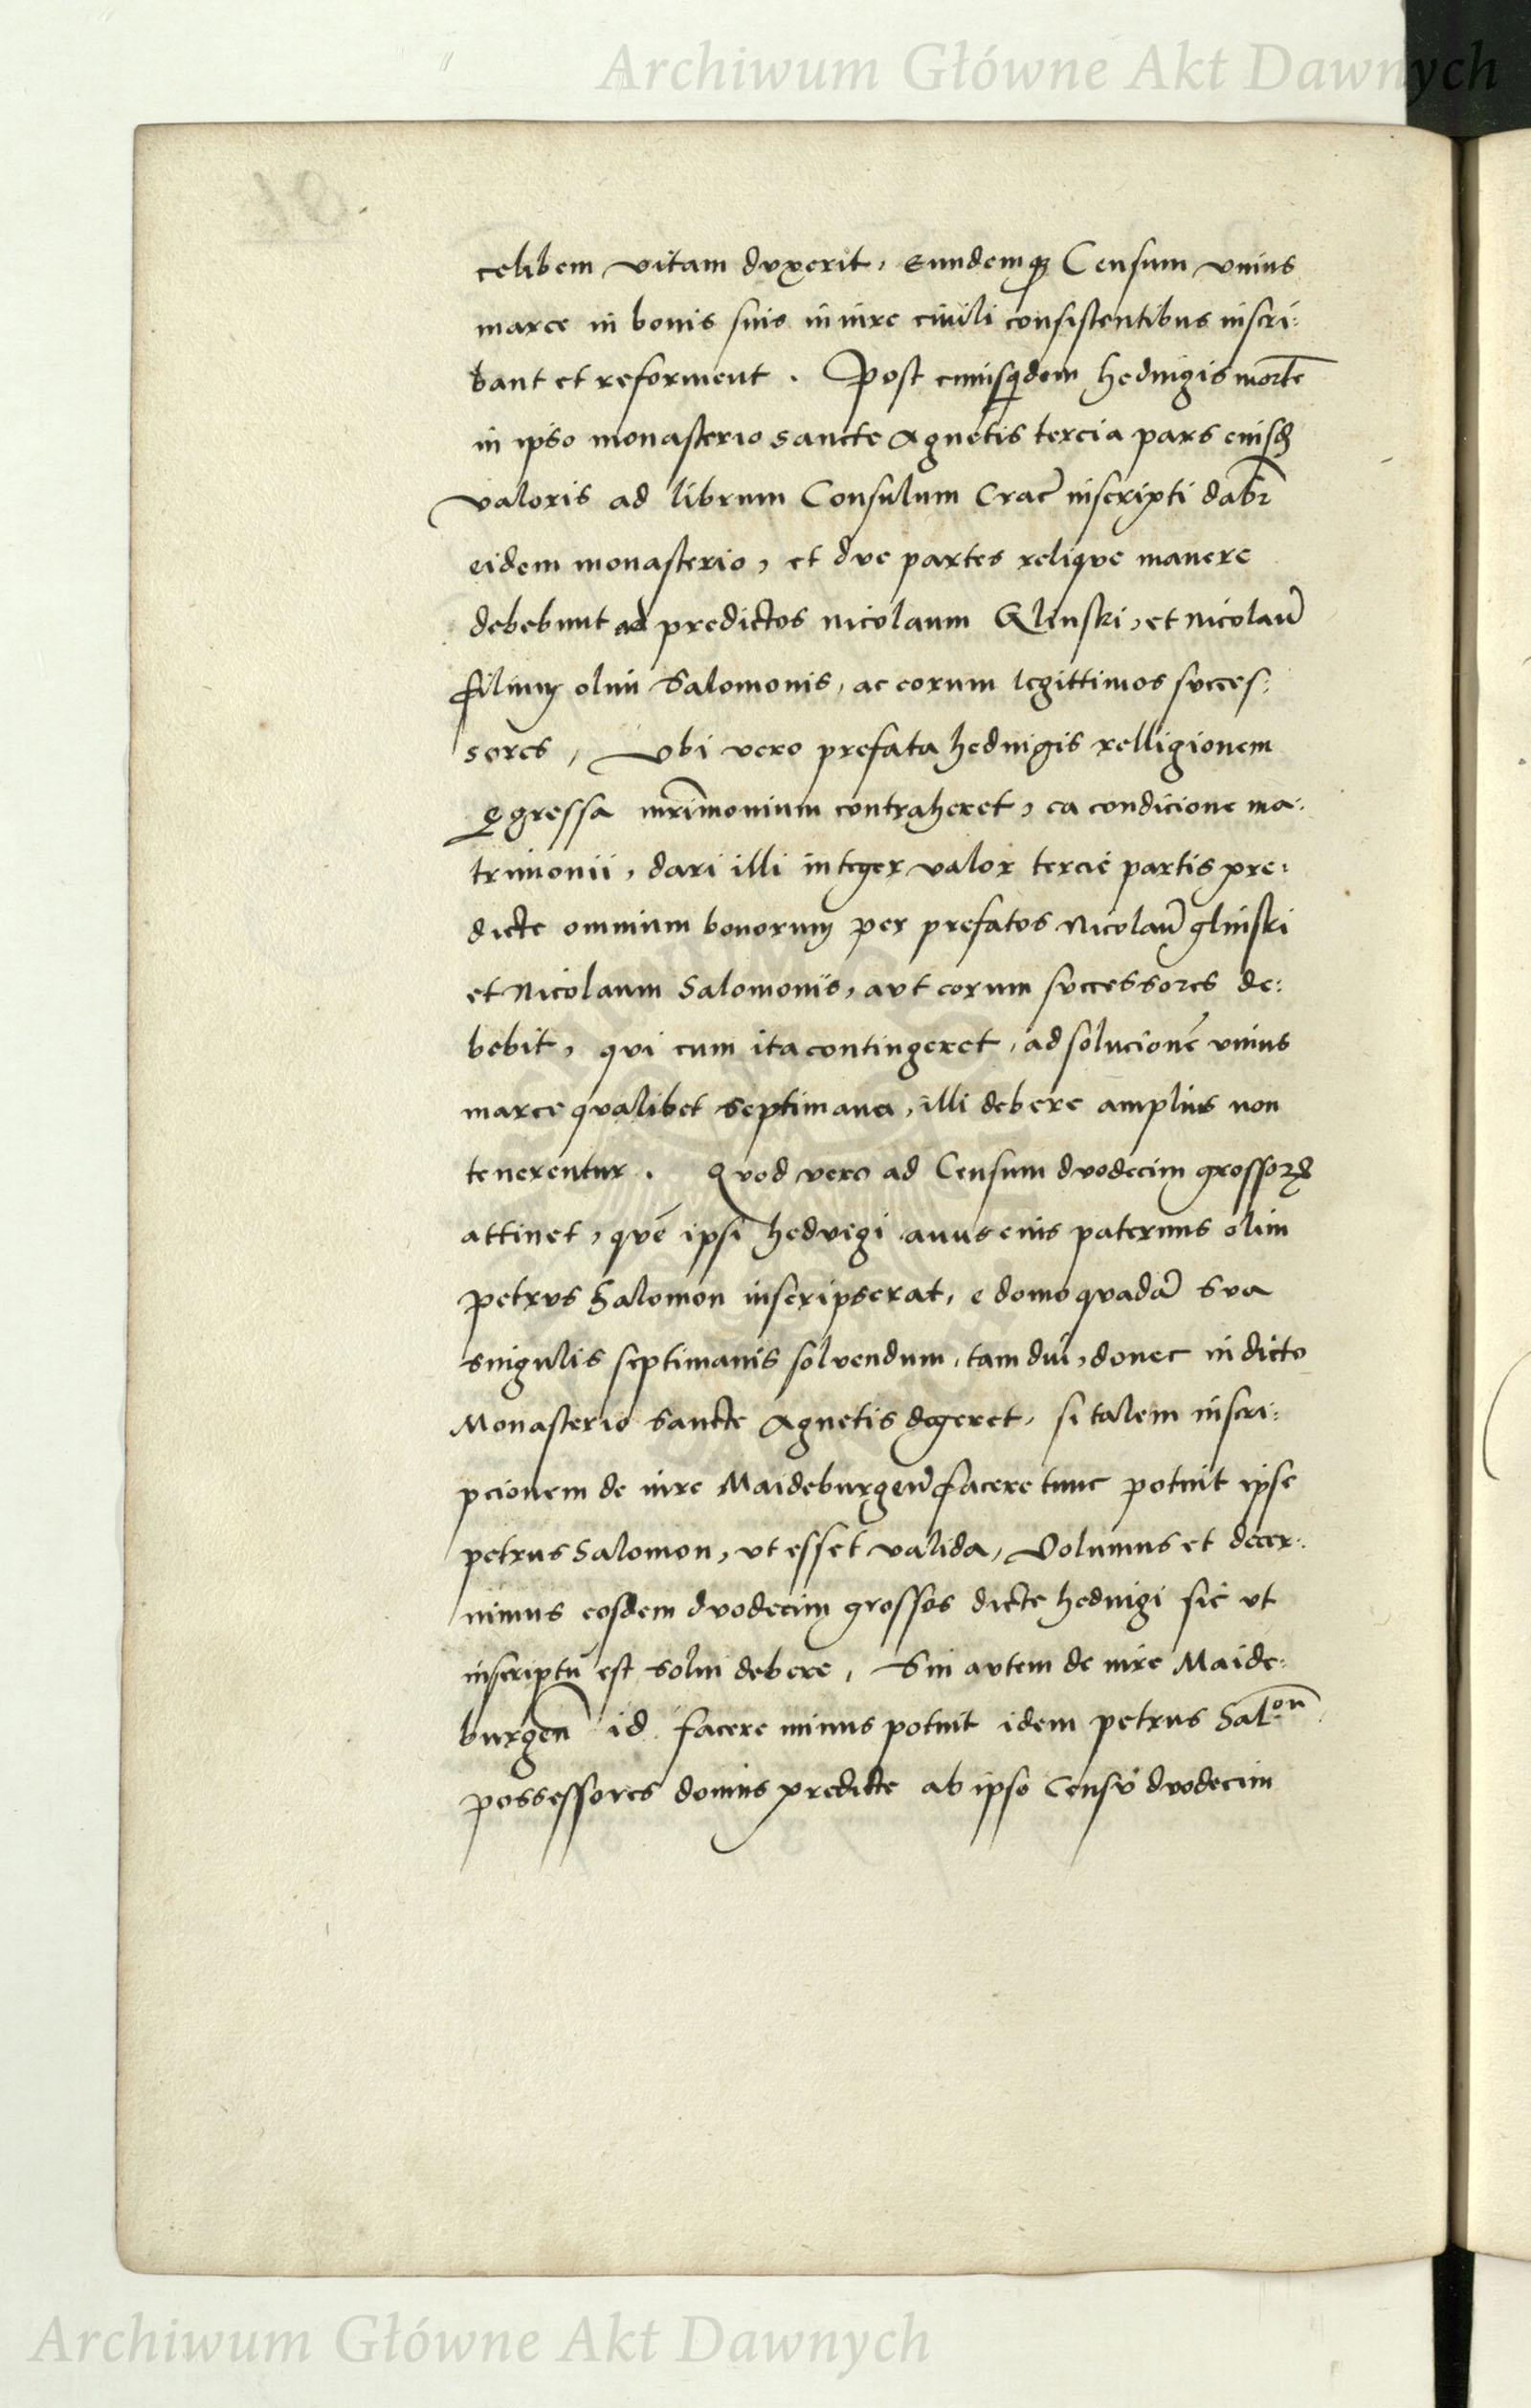 Archiwum Główne Akt Dawnych
celibem vitam dvxerit, Eundemqȝ Censum vnius
marce in bonis suis in iure ciuili consistentibus inscri:
bant et reforment. Post cuiusqdem hedvigis morte͂
in ipso monasterio sancte Agnetis tercia pars eiusd
valoris ad librum Consulum Crac͂ inscripti dabr͂
eidem monasterio, et dve partes reliqve manere
debebunt ad predictos nicolaum Glinski, et nicolau͂
filium olim Salomonis, ac eorum legittimos svcces:
sores, Vbi vero prefata hedvigis relligionem
egressa mr͂imonium contraheret, ea condicione ma:
trimonii, dari illi integer valor tercie partis pre:
dicte omnium bonorum per prefatos Nicolau͂ glinski
et Nicolaum Salomonis, avt eorum svccessores de:
bebit, qvi cum ita contingeret, ad solucione͂ vnius
marce qvalibet septimana, illi debere amplius non
tenerentur. Qvod vero ad Censum dvodecim grossorꝝ
attinet, qve͂ ipsi hedvigi auus eius paternus olim
petrvs Salomon inscripserat, e domo qvada͂ sva
singulis septimanis solvendum, tam diu, donec in dicto
Monasterio sancte Agnetis degeret, si talem inscri:
pcionem de iure Maideburgen͂ facere tunc potuit ipse
petrus Salomon, vt esset valida, Volumus et decer:
nimus eosdem dvodecim grossos dicte hedvigi sic vt
inscriptu͂ est solvi debere, Sin avtem de iure Maide:
burgen͂ id facere minus potuit idem petrus Sal:on
possessores domus predicte ab ipso Censv dvodecim
Archiwum Główne Akt Dawnych